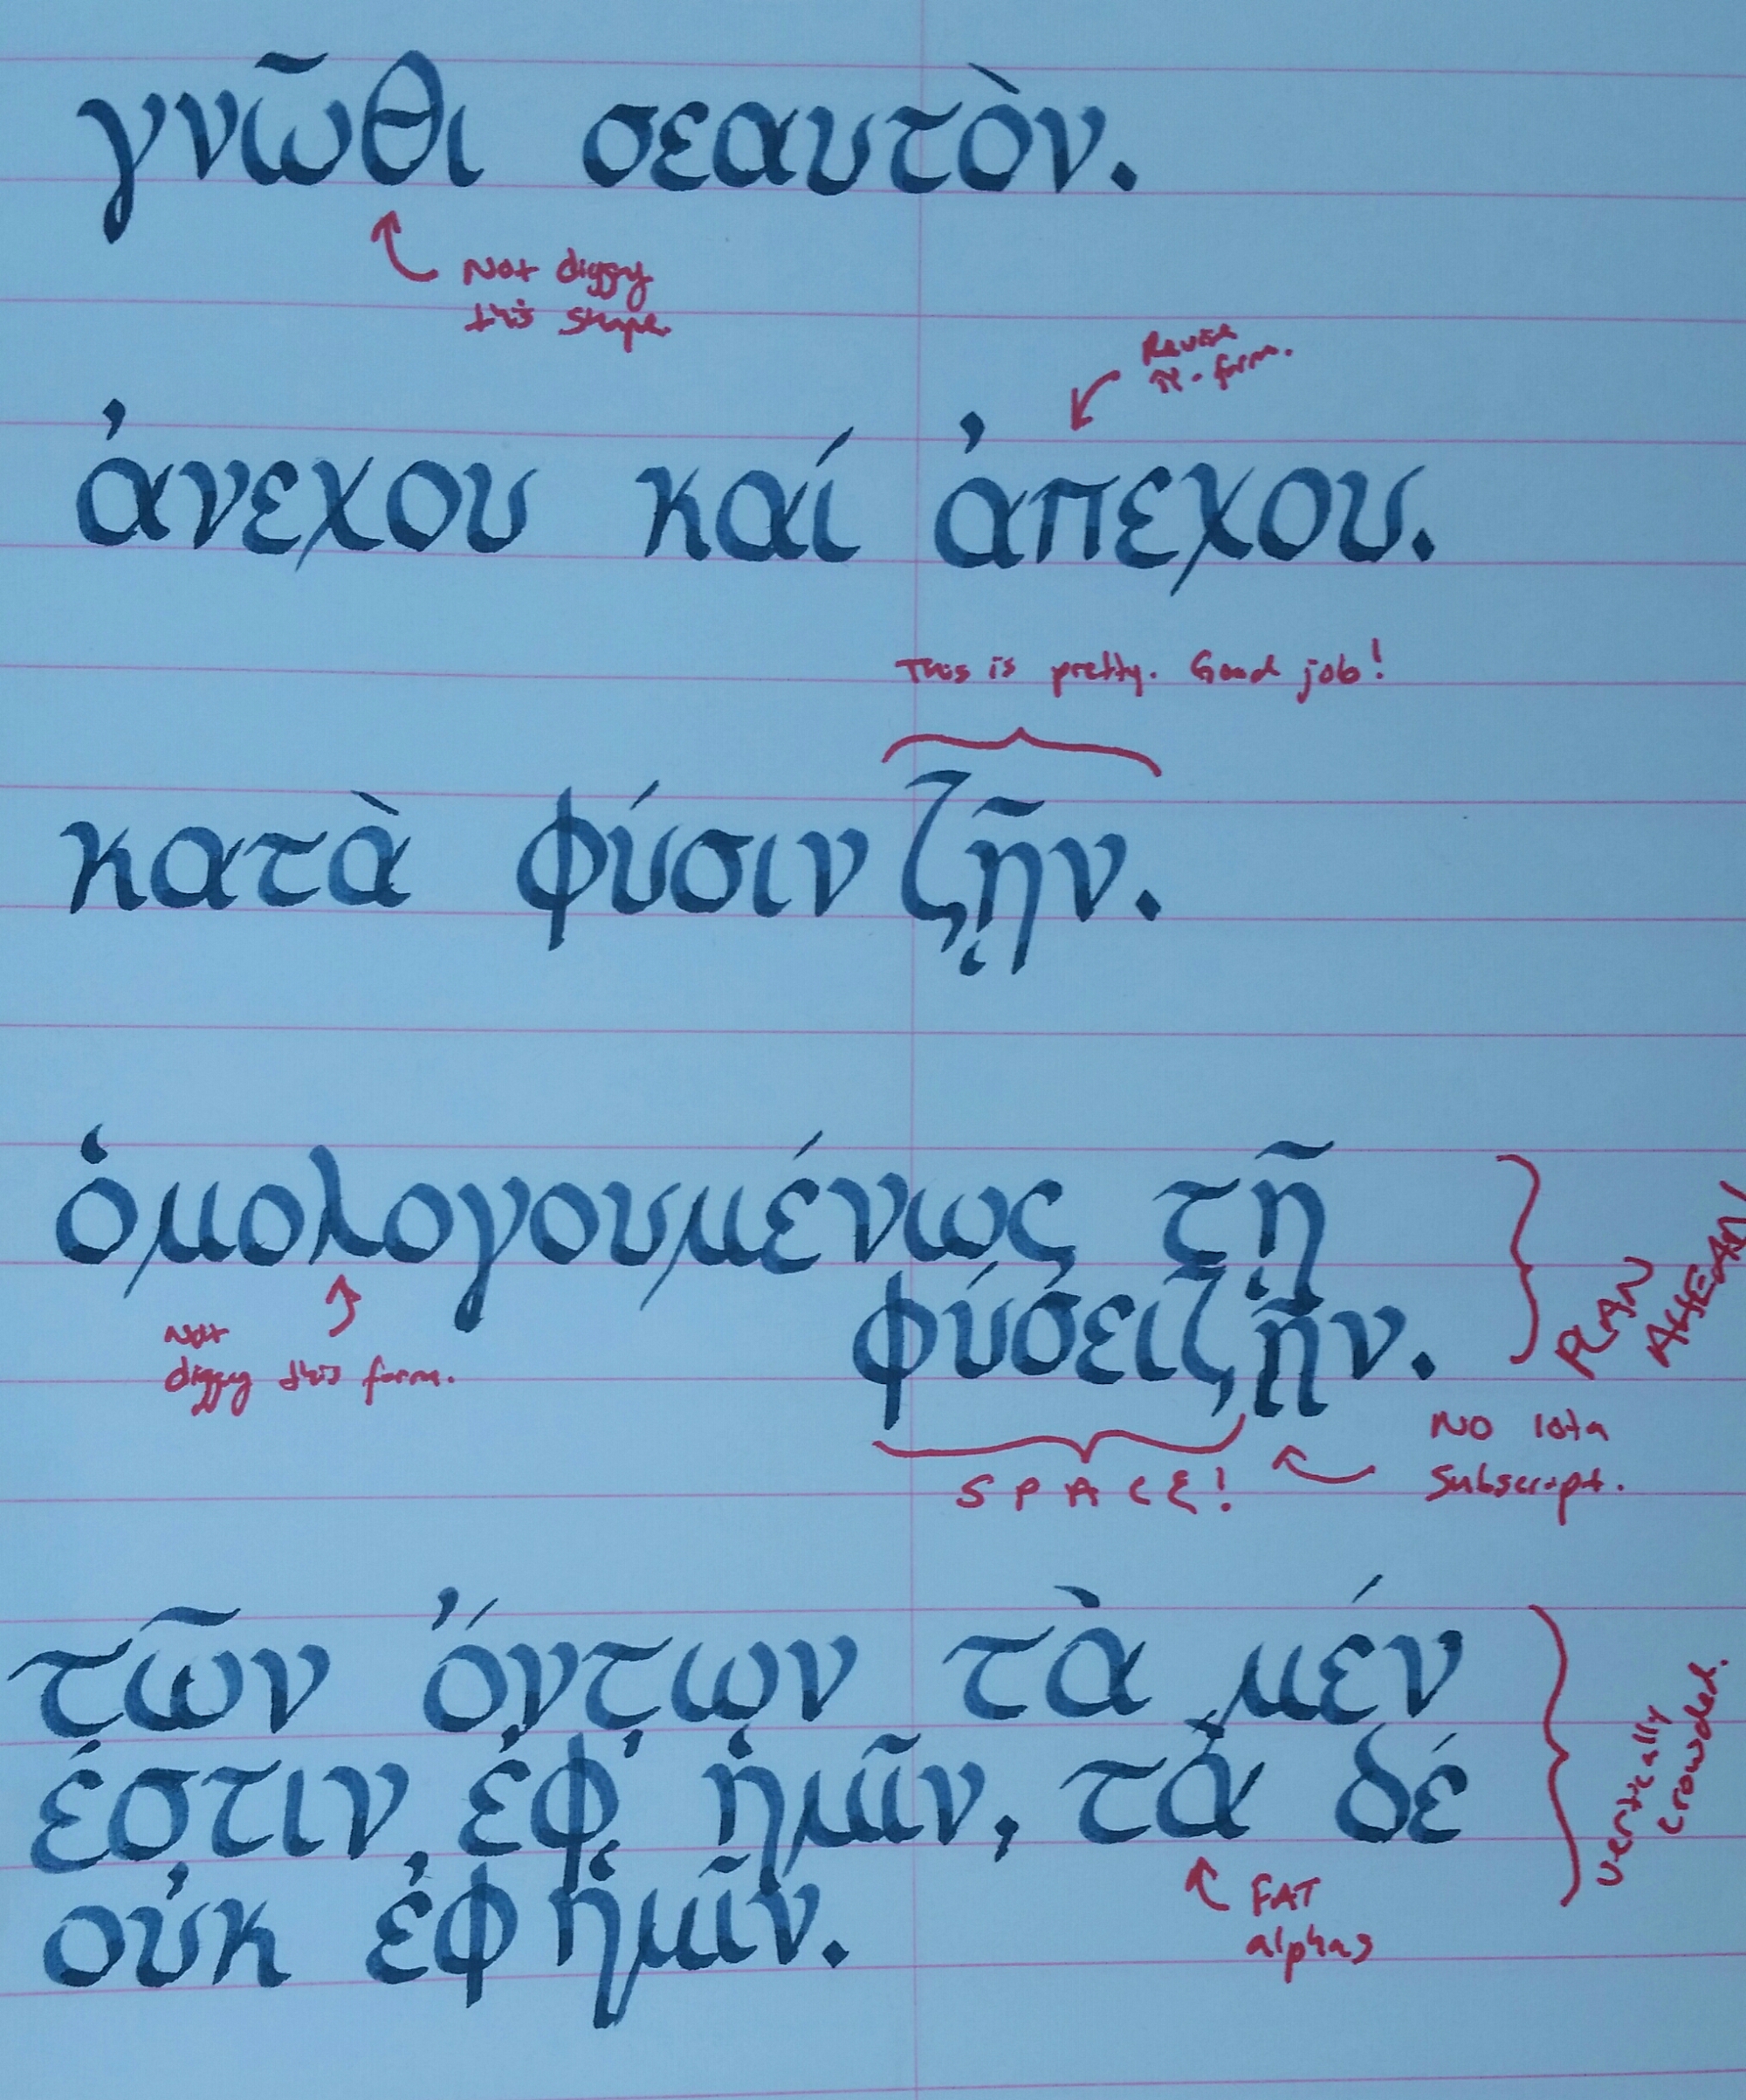 γνῶθι σεαυτὸν.
Not diggy
this shape.
Revise
π-form.
ἀνεχου καί ἀπεχου.
This is pretty. Good job!
κατὰ φύσιν ζῇν.
ὁμολογουμένως τῇ
φύσει ζῆν.
PLAN
AHEAD!
Not
diggy this form.
SPACE!
NO iota
subscript.
τῶν ὄντων τὰ μέν
έστιν ἐφ' ἡμῖν, τὰ δέ
οὐκ ἐφ' ἡμῖν.
vertically
crowded.
FAT
alphas